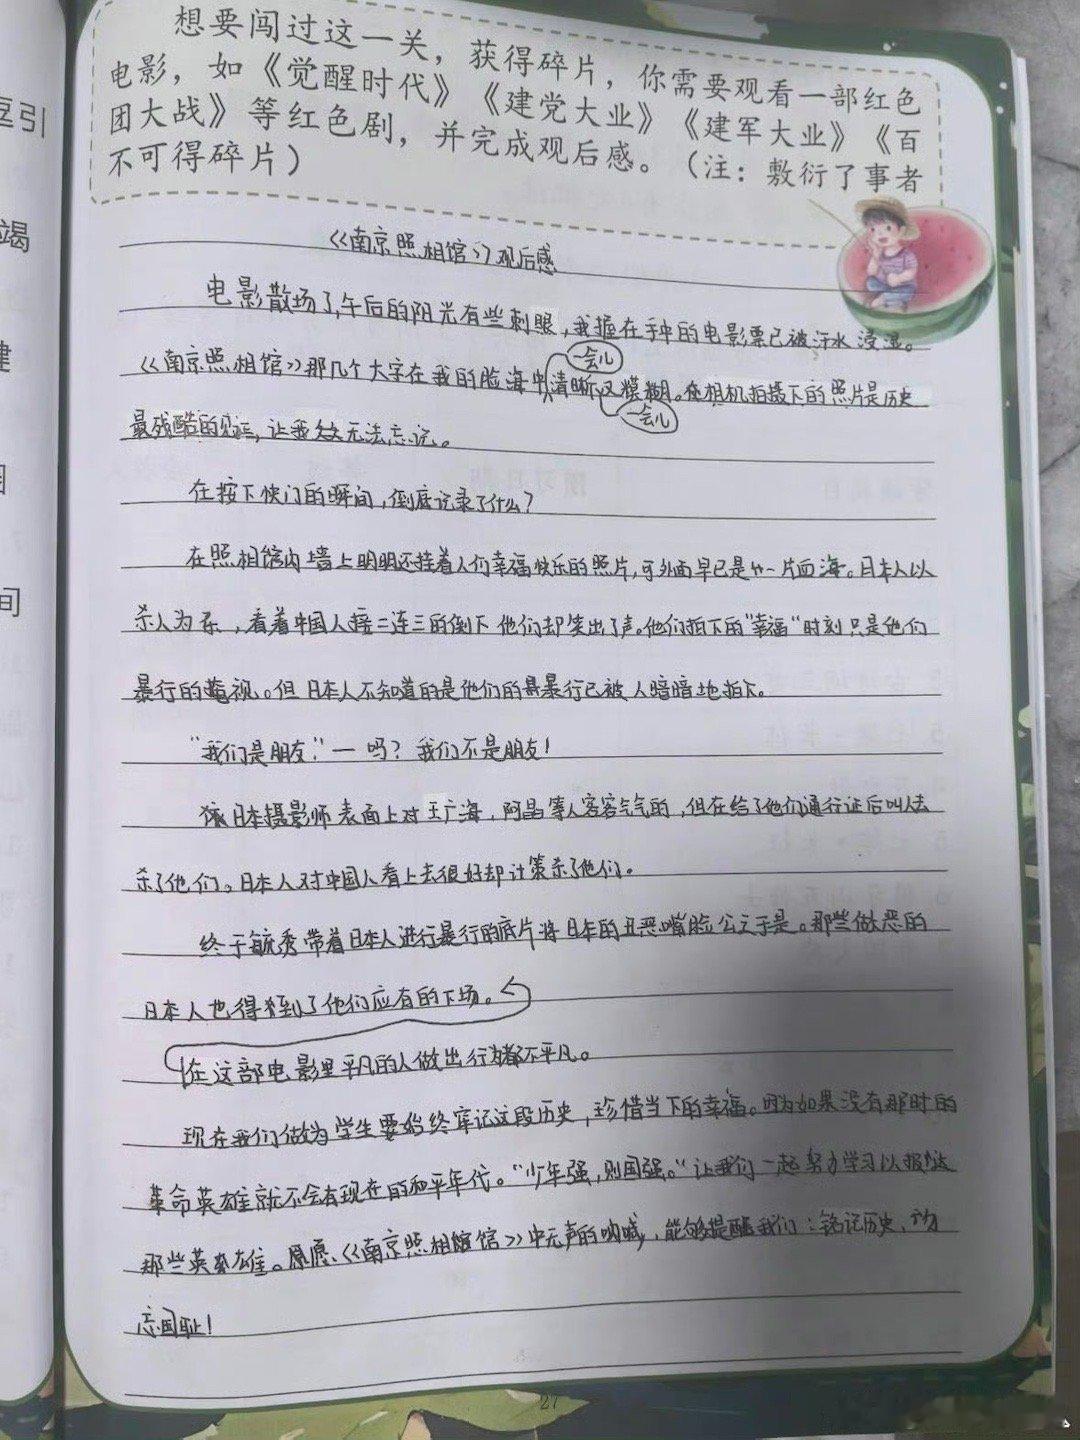 想要闯过这一关，获得碎片，你需要观看一部红色
电影，如《觉醒时代》《建党大业》《建军大业》《百
团大战》等红色剧，并完成观后感。（注：敷衍了事者
不可得碎片）
《南京照相馆》观后感
电影散场了,午后的阳光有些刺眼，我握在手中的电影票已被汗水浸湿。
《南京照相馆》那几个大字在我的脸海中一会儿清晰一会儿又模糊。在相机拍摄下的照片是历史
最残酷的见证，让我久久无法忘记。
在按下快门的瞬间，倒底记录了什么？
在照相馆内墙上明明还挂着人们幸福快乐的照片，可外面早已是一片血海。日本人以
杀人为乐，看着中国人接二连三的倒下他们却笑出了声。他们拍下的“幸福”时刻只是他们
暴行的蔑视。但日本人不知道的是他们的暴行已被人暗暗地拍下。
“我们是朋友”—吗？我们不是朋友！
日本摄影师表面上对王广海，阿昌等人客客气气的，但在给了他们通行证后叫人去
杀了他们。日本人对中国人看上去很好却计策杀了他们。
终于毓秀带着日本人进行暴行的底片将日本的丑恶嘴脸公之于是。那些做恶的
日本人也得到了他们应有的下场。
在这部电影里平凡的人做出行为都不平凡。
现在我们做为学生要始终牢记这段历史，珍惜当下的幸福。因为如果没有那时的
革命英雄就不会有现在的和平年代。“少年强，则国强。”让我们一起努力学习以报答
那些英雄。愿《南京照相馆》中无声的呐喊，能够提醒我们：铭记历史，勿
忘国耻！
27
豆引
竭
建
间